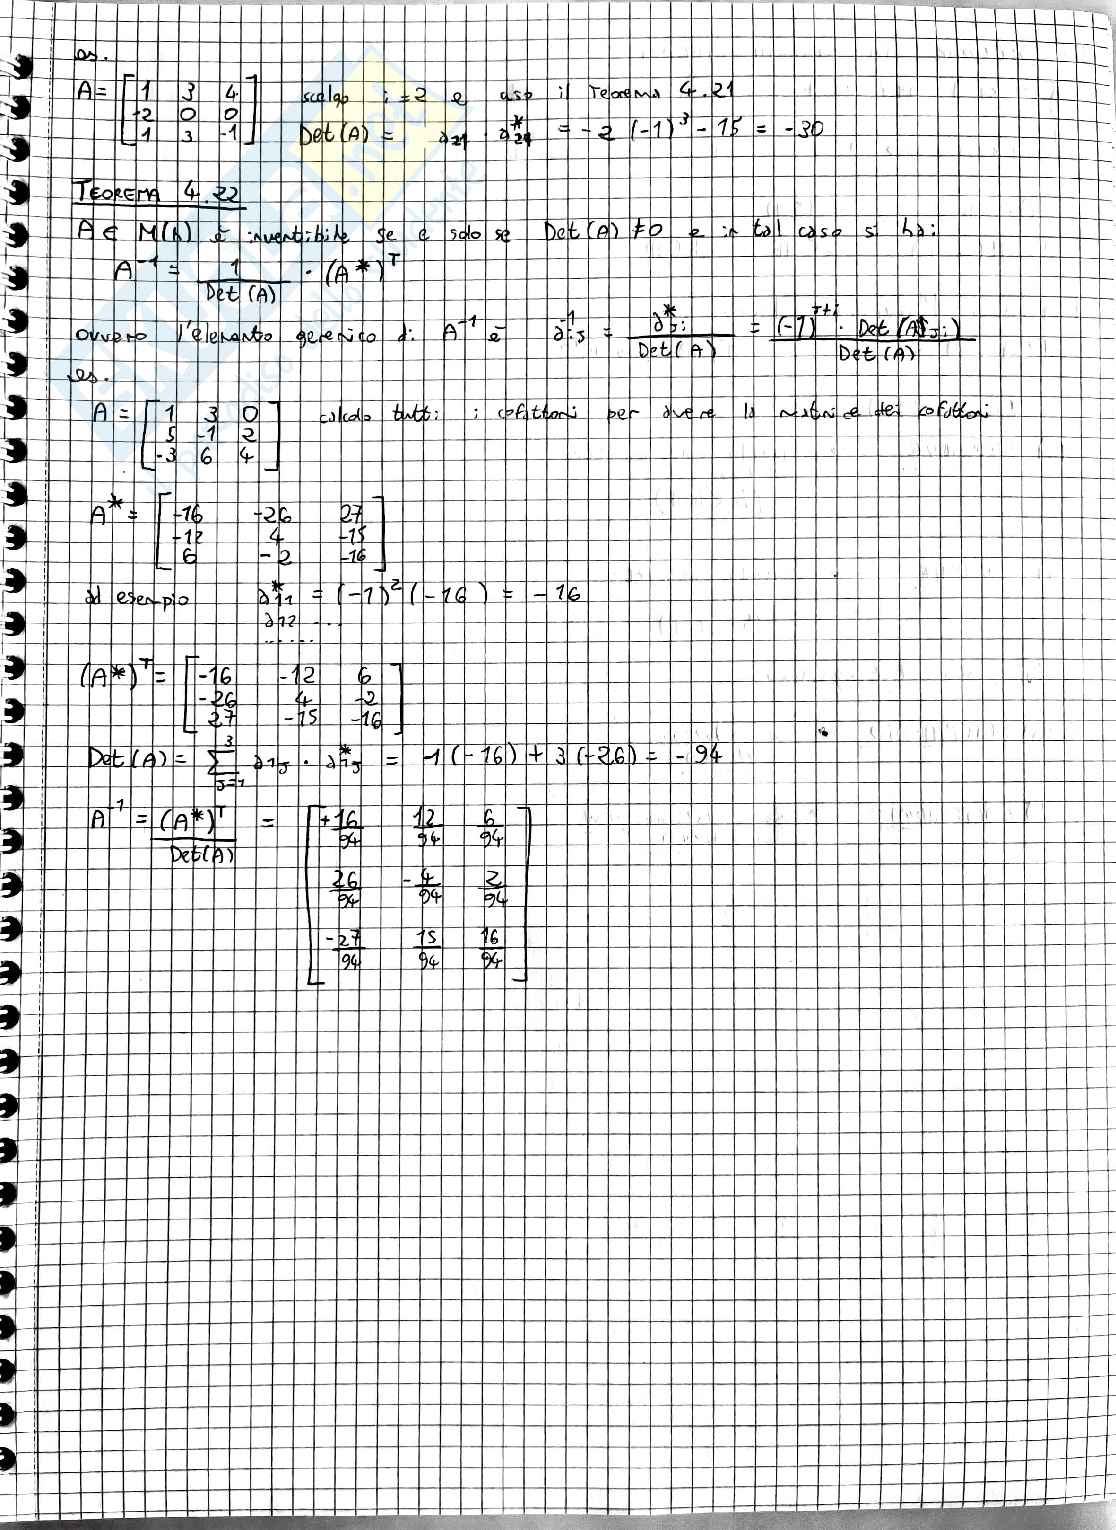 es.
A = [1 3 4
-2 0 0
1 3 -1] scelgo i = 2 e uso il Teorema 4.21
Det(A) = a21 · a*21 = -2 (-1)³ - 15 = -30
TEOREMA 4.22
A ∈ M(n) è invertibile se e solo se Det(A) ≠ 0 e in tal caso si ha:
A⁻¹ = 1/Det(A) · (A*)ᵀ
ovvero l'elemento generico di A⁻¹ è a⁻¹ij = a*ji/Det(A) = (-1)^(J+i) · Det(AJi)/Det(A)
es.
A = [1 3 0
5 -1 2
-3 6 4] calcolo tutti i cofattori per avere la matrice dei cofattori
A* = [-16 -26 27
-12 4 -15
6 -2 -16]
ad esempio a*11 = (-1)² (-16) = -16
a12 ...
......
(A*)ᵀ = [-16 -12 6
-26 4 -2
27 -15 -16]
Det(A) = Σ³J=1 a1J · a*1J = 1(-16) + 3(-26) = -94
A⁻¹ = (A*)ᵀ/Det(A) = [+16/94 12/94 6/94
26/94 -4/94 2/94
-27/94 15/94 16/94]